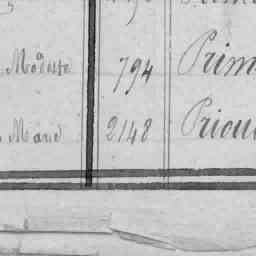 Modeste 794 Prim
Marie 2148 Priou